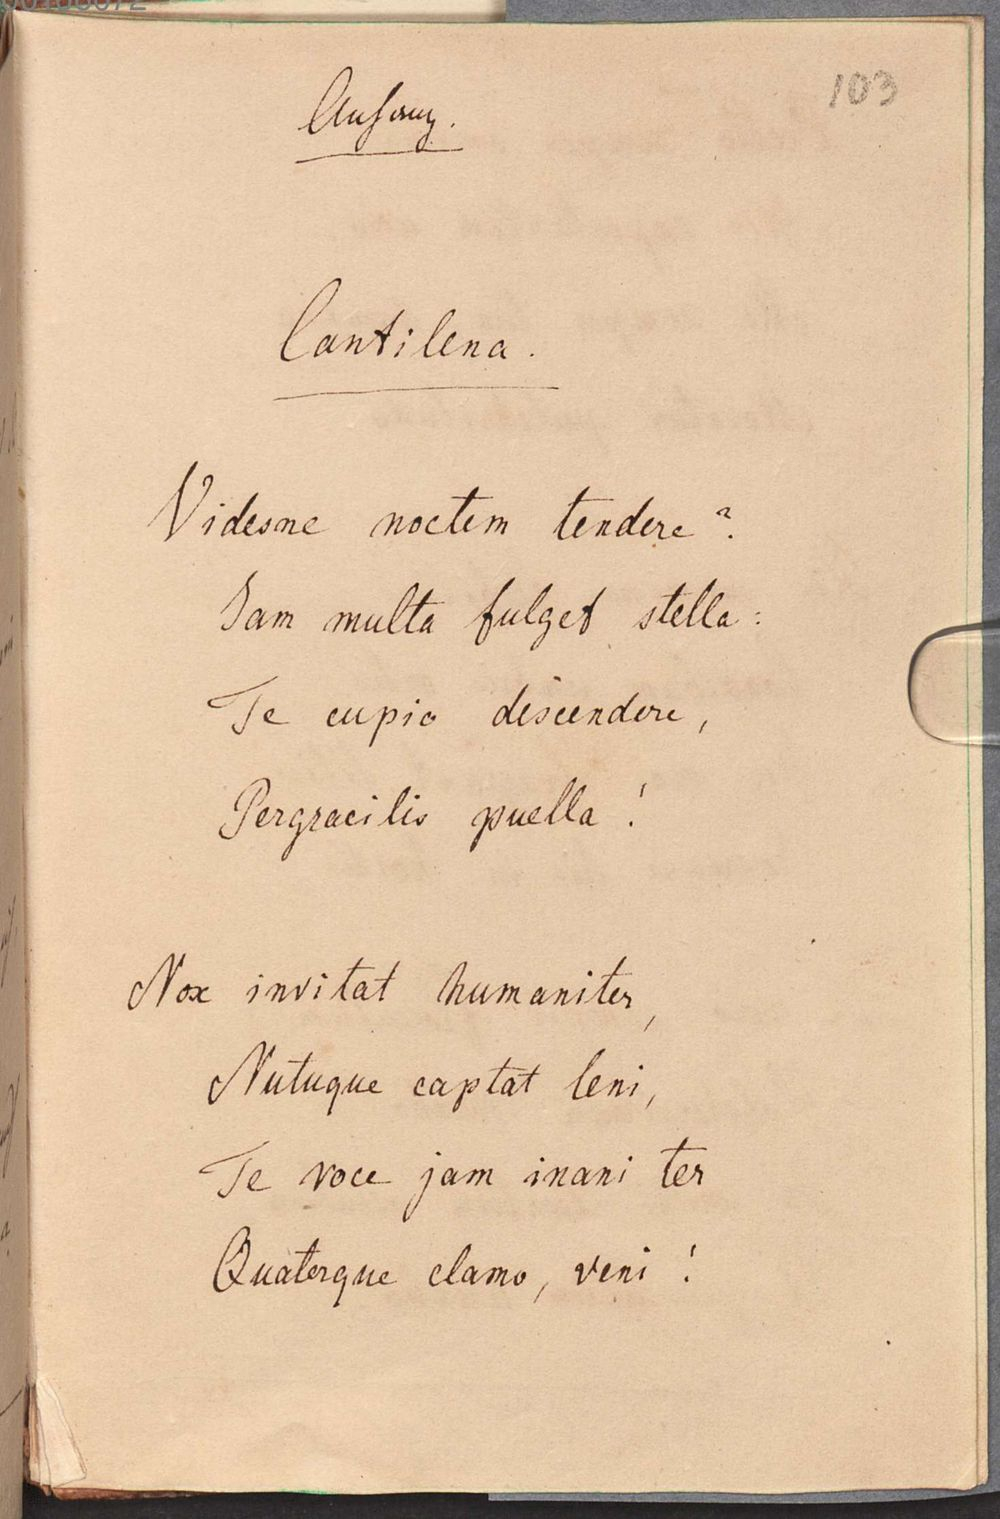 103
Anhang.
Cantilena.
Videsne noctem tendere?
Jam multa fulget stella:
Te cupio descendere,
Pergracilis puella!
Nox invitat humaniter,
Nutuque captat leni,
Te voce jam inani ter
Quaterque clamo, veni!